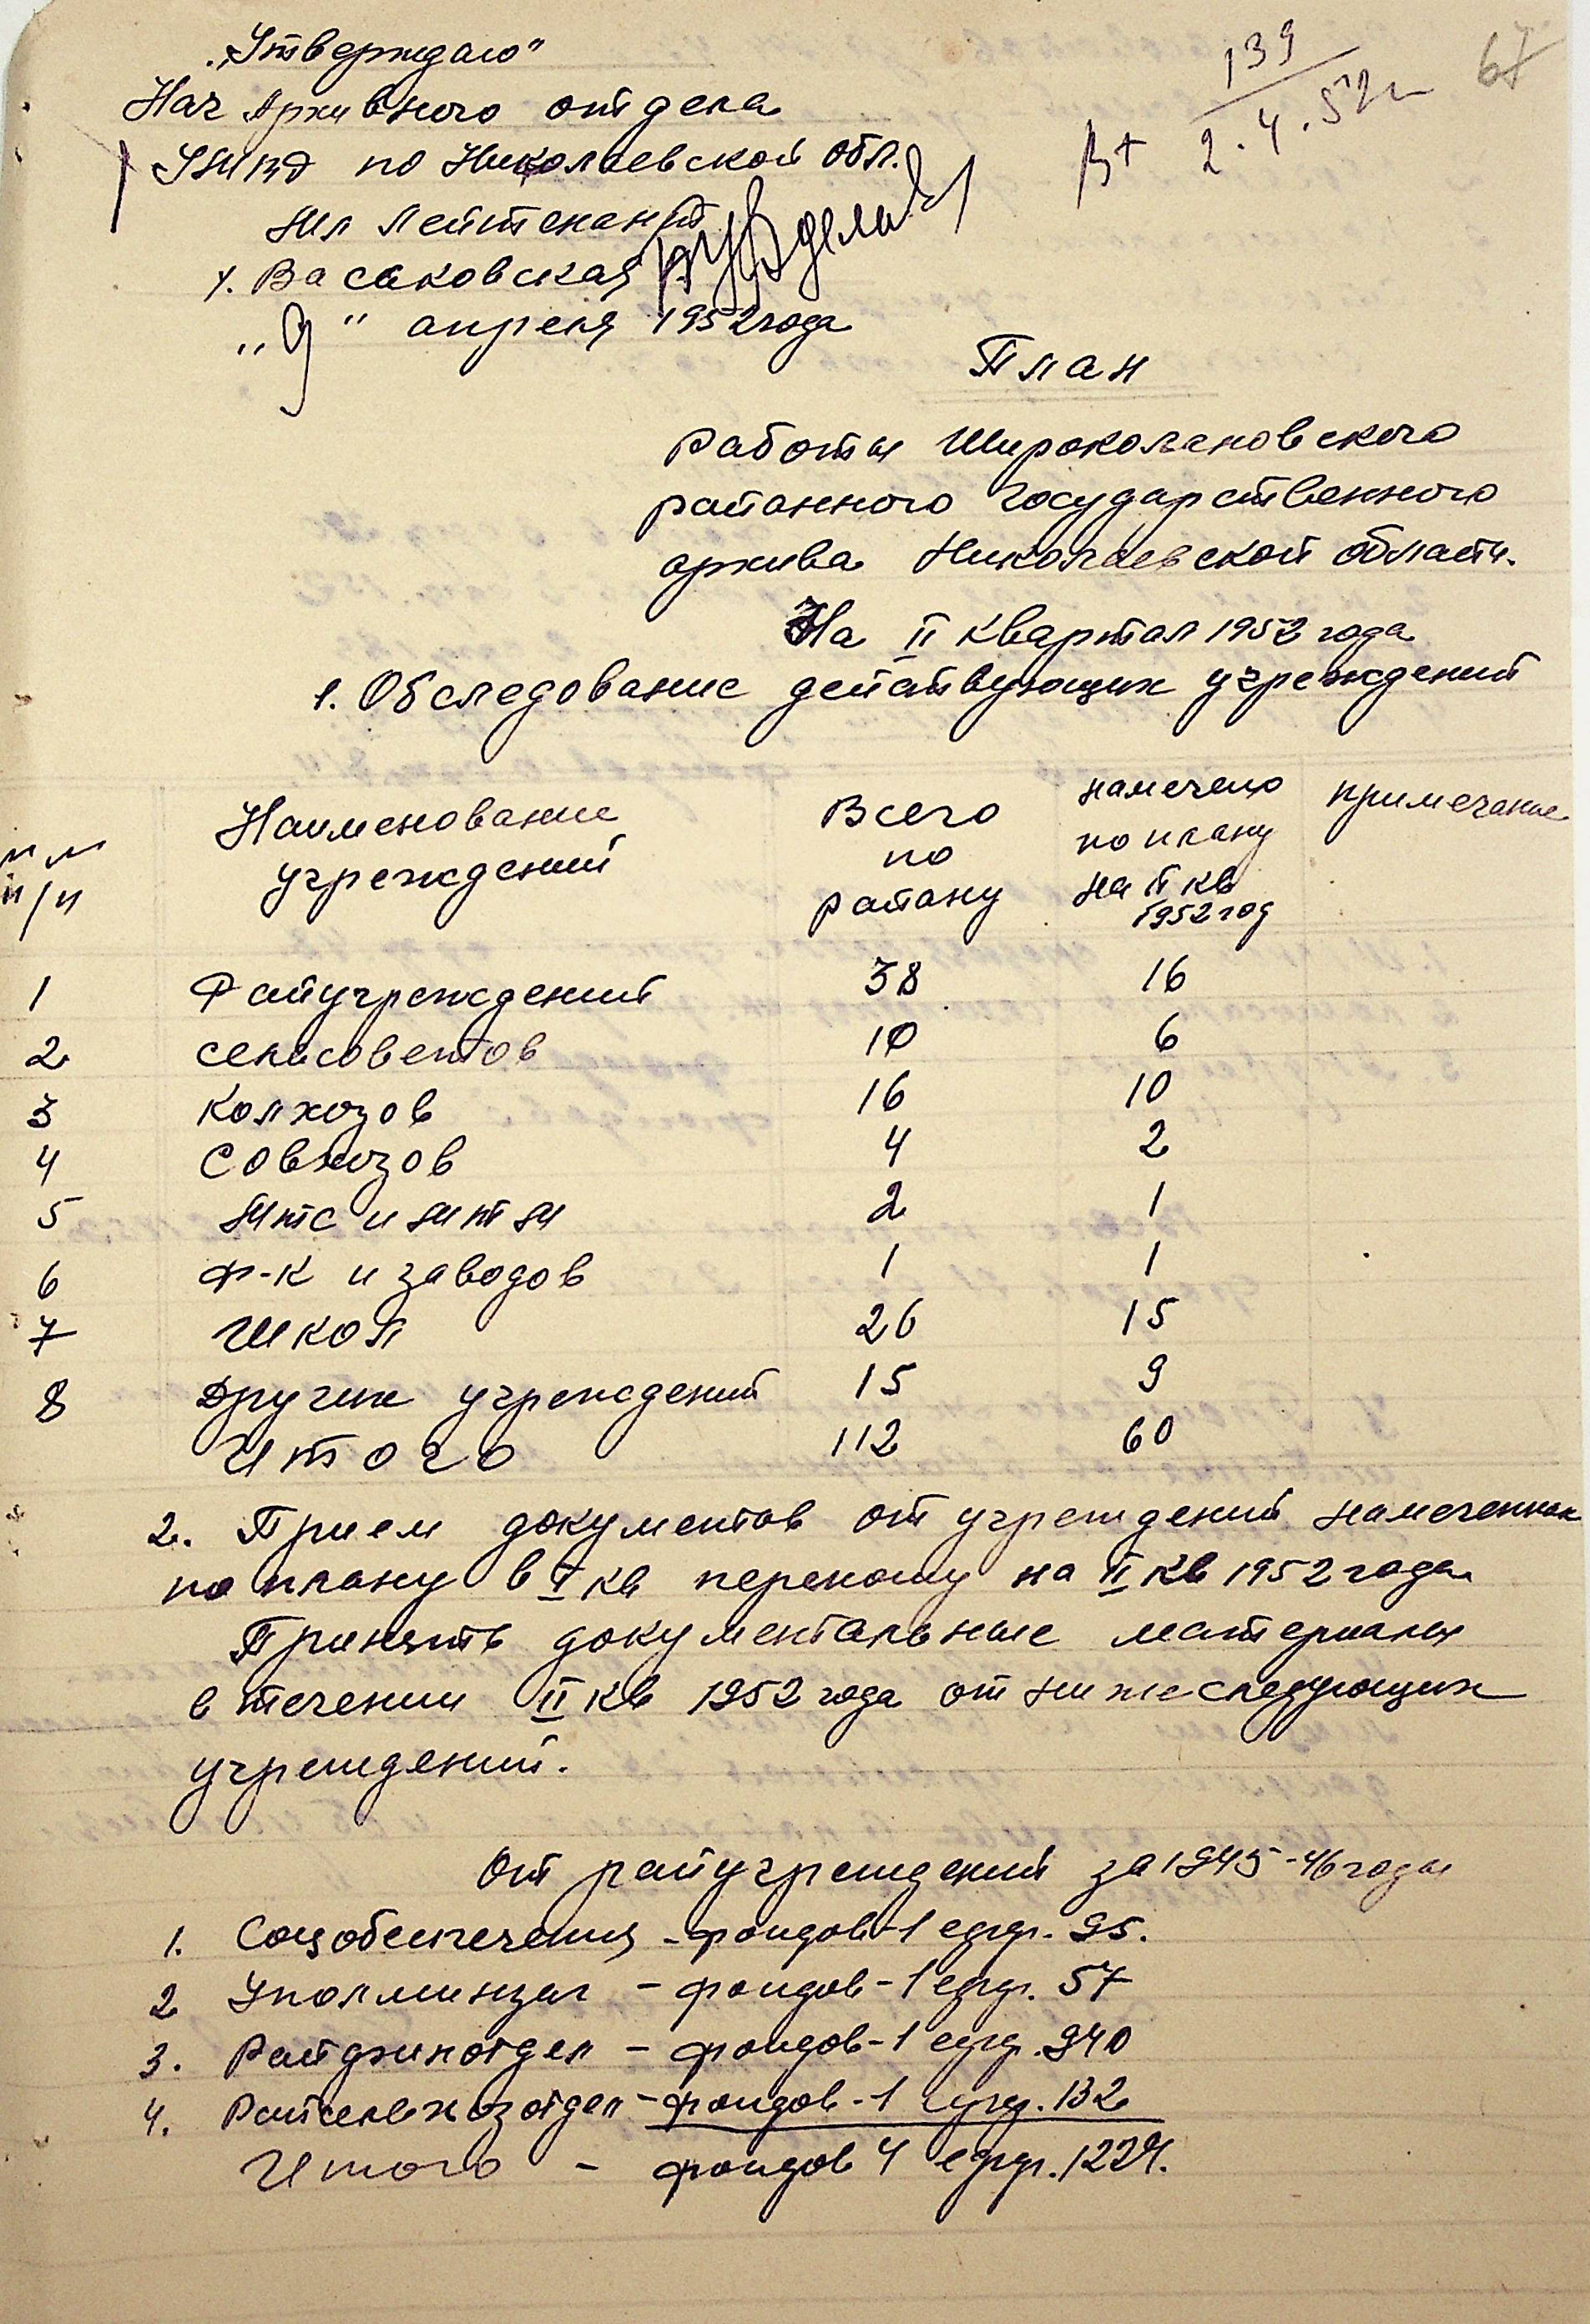 „Утверждаю"
Нач Архивного отдела
УМВД по Николаевской обл.
мл лейтенант
Васаковская
„9" апреля 1952 года
139
Вх 2.4.52г
67
План
работы Широколановского
районного государственного
архива Николаевской области.
На II квартал 1952 года
1. Обследование действующих учреждений
№№ п/п Наименование учреждений Всего по району намечено по плану на II кв 1952 год примечание
1 Райучреждений 38 16
2 сельсоветов 10 6
3 колхозов 16 10
4 совхозов 4 2
5 МТС и МТМ 2 1
6 ф-к и заводов 1 1
7 школ 26 15
8 Других учреждений 15 9
Итого 112 60
2. Прием документов от учреждений намеченных
по плану в I кв переношу на II кв 1952 года
Принять документальные материалы
в течении II кв 1952 года от нижеследующих
учреждений.
От райучреждений за 1945-46 годы
1. Соцобеспечения - фондов-1 едхр. 95.
2 Уполминзаг - фондов-1 едхр. 57
3. Райфинотдел - фондов-1 едхр. 940
4. Райсельхозотдел - фондов-1 едхр. 132
Итого - фондов 4 едхр. 1224.